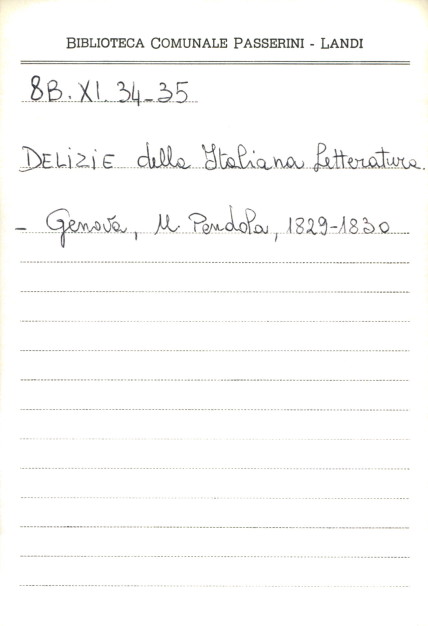 BIBLIOTECA COMUNALE PASSERINI - LANDI
8B. XI. 34-35
DELIZIE della Italiana Letteratura.
- Genova, N. Pendola, 1829-1830